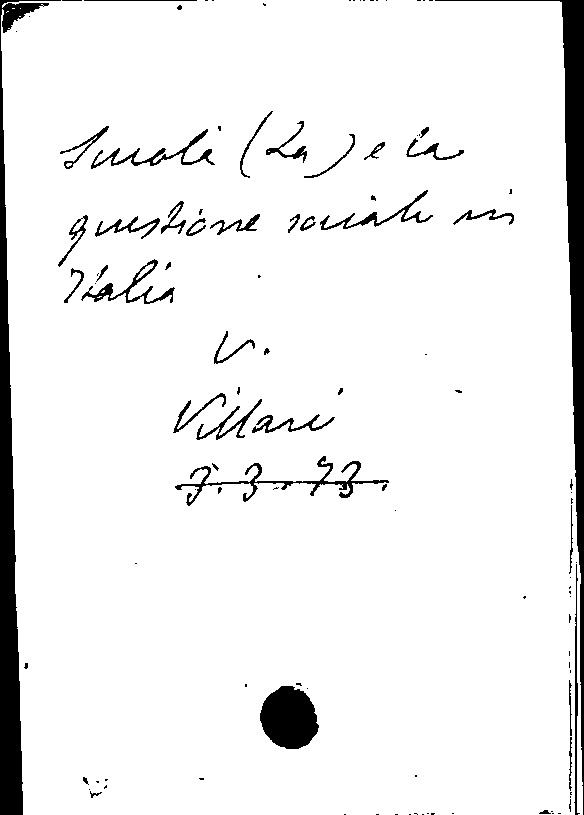 Scuola (La) e la
questione sociale in
Italia
V.
Villari
3.3.73.